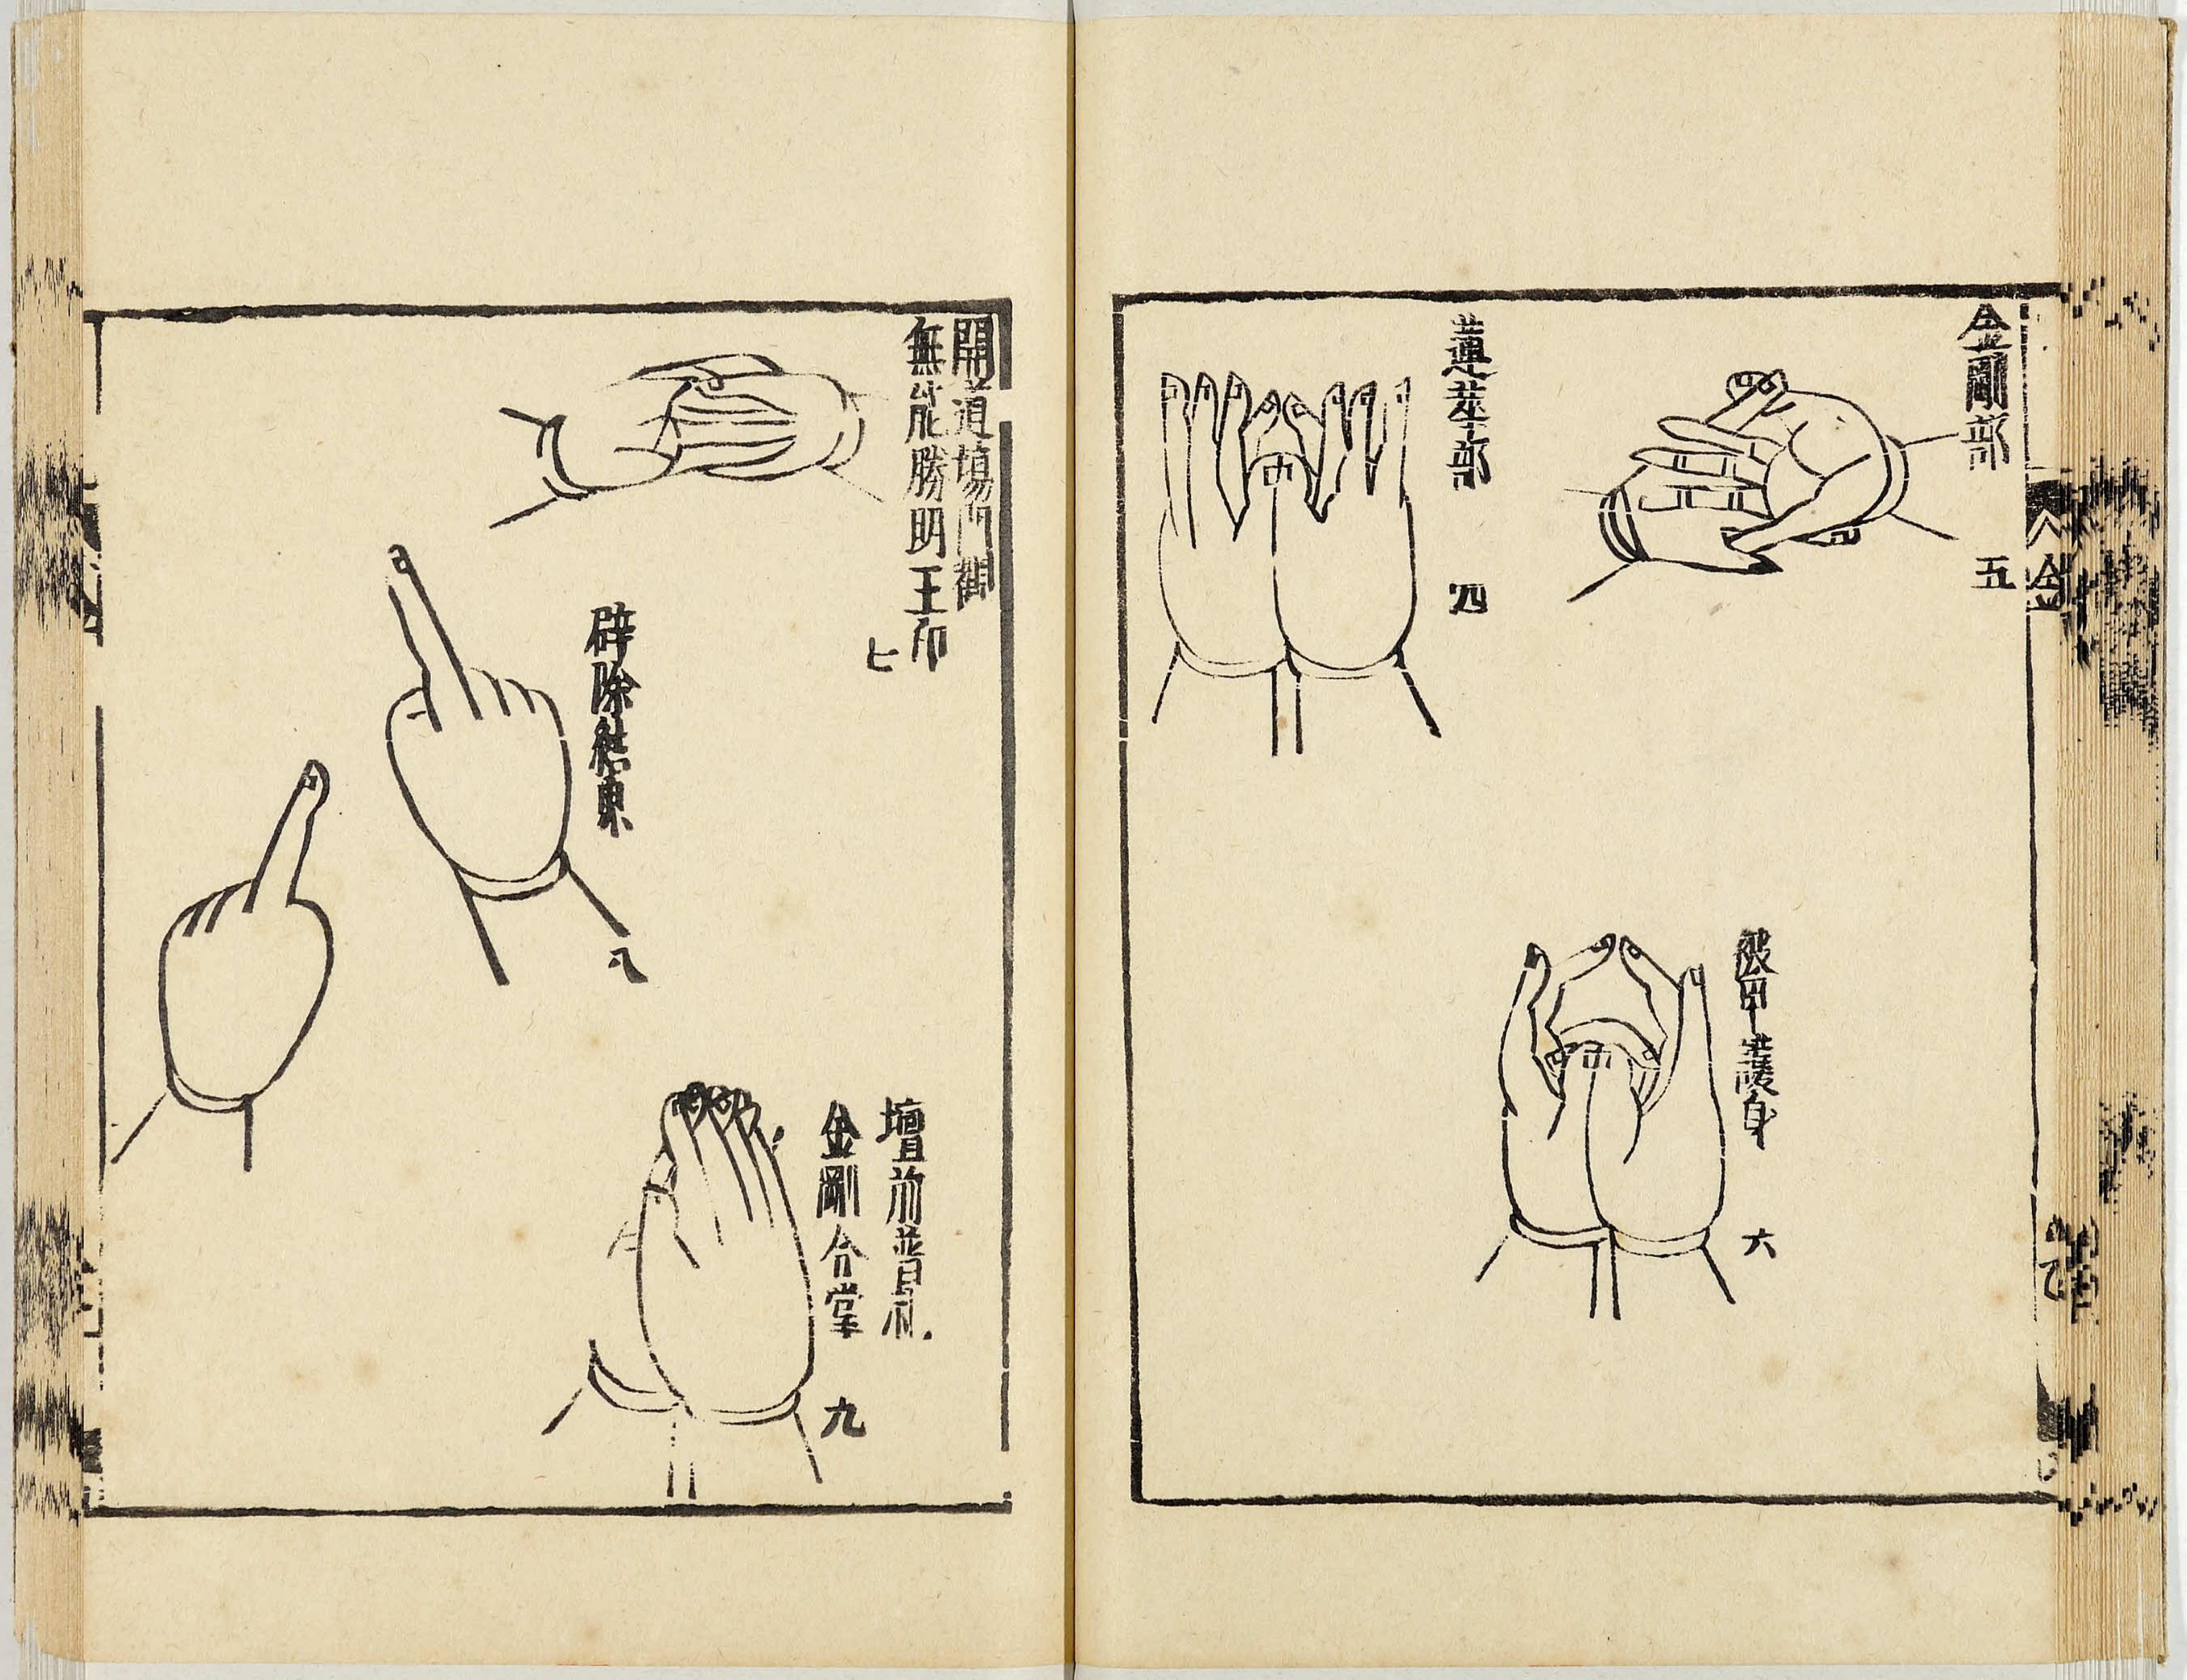 金剛部
五
蓮華部
四
被甲護身
六
開道塲門御
無能勝明王印
七
辟除結東
八
壇前普礼
金剛合掌
九
金